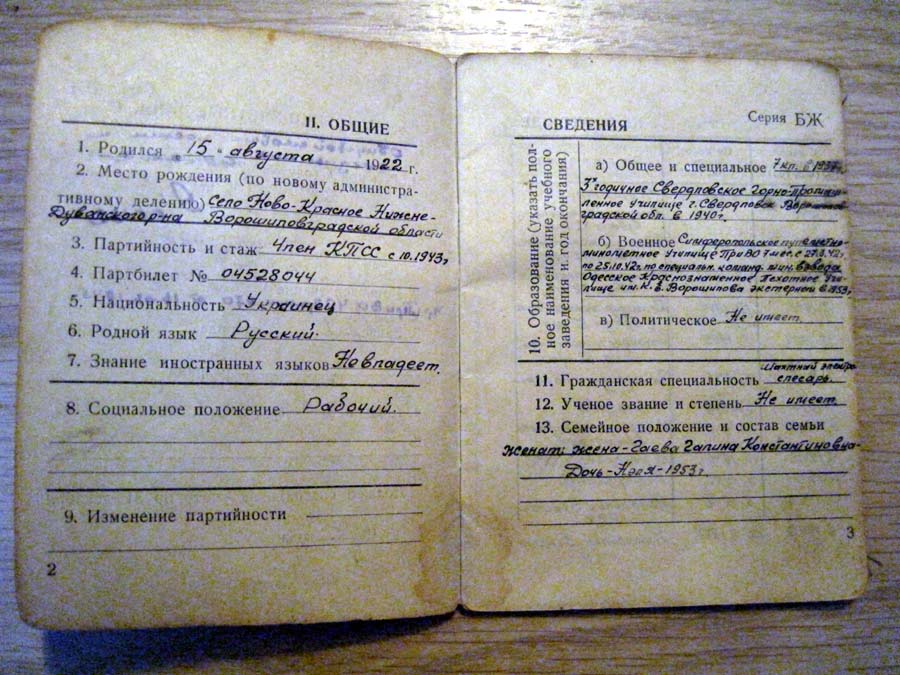 II. ОБЩИЕ
1. Родился „15" августа 1922 г.
2. Место рождения (по новому администра-
тивному делению) Село Ново-Красное Нижне-
Дуванского р-на Ворошиловградской области
3. Партийность и стаж Член КПСС с 10.1943г
4. Партбилет № 04528044
5. Национальность Украинец
6. Родной язык Русский.
7. Знание иностранных языков Не владеет.
8. Социальное положение Рабочий.
9. Изменение партийности
2
СВЕДЕНИЯ
Серия БЖ
10. Образование (указать пол-
ное наименование учебного
заведения и год окончания)
а) Общее и специальное 7 кл. в 1937г.
3х годичное Свердловское Горно-промыш-
ленное Училище г. Свердловск Ворошилов-
градской обл. в 1940г.
б) Военное Симферопольское пулеметно-
минометное Училище ПриВО 7 мес. с 27.3.42г.
по 25.10.42г. по специальн. команд. мин. взвода
Одесское Краснознаменное Пехотное Учи-
лище им. К. Е. Ворошилова экстерном в 1953г.
в) Политическое Не имеет.
11. Гражданская специальность Шахтный электро-
слесарь.
12. Ученое звание и степень Не имеет.
13. Семейное положение и состав семьи
женат: жена - Гаева Галина Константиновна-
Дочь - Нэля - 1953г
3